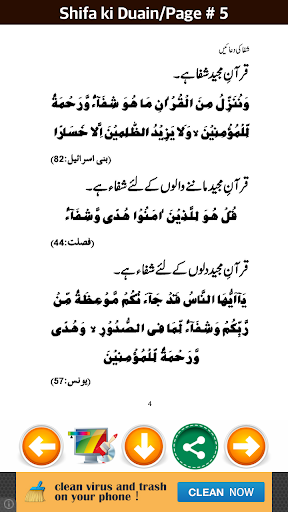 Shifa ki Duain/Page # 5
شفا کی دعائیں
قرآنِ مجید شفا ہے۔
وَنُنَزِّلُ مِنَ الْقُرْاٰنِ مَا هُوَ شِفَآءٌ وَّرَحْمَةٌ
لِّلْمُؤْمِنِيْنَ ۙ وَلَا يَزِيْدُ الظّٰلِمِيْنَ اِلَّا خَسَارًا
(بنی اسرائیل:82)
قرآنِ مجید ماننے والوں کے لئے شفاء ہے۔
قُلْ هُوَ لِلَّذِيْنَ اٰمَنُوْا هُدًى وَّشِفَآءٌ
(فصلت:44)
قرآنِ مجید دلوں کے لئے شفاء ہے۔
يٰٓاَيُّهَا النَّاسُ قَدْ جَآءَتْكُمْ مَّوْعِظَةٌ مِّنْ
رَّبِّكُمْ وَشِفَآءٌ لِّمَا فِى الصُّدُوْرِ ۙ وَهُدًى
وَّرَحْمَةٌ لِّلْمُؤْمِنِيْنَ
(یونس:57)
4
clean virus and trash
on your phone !
CLEAN NOW